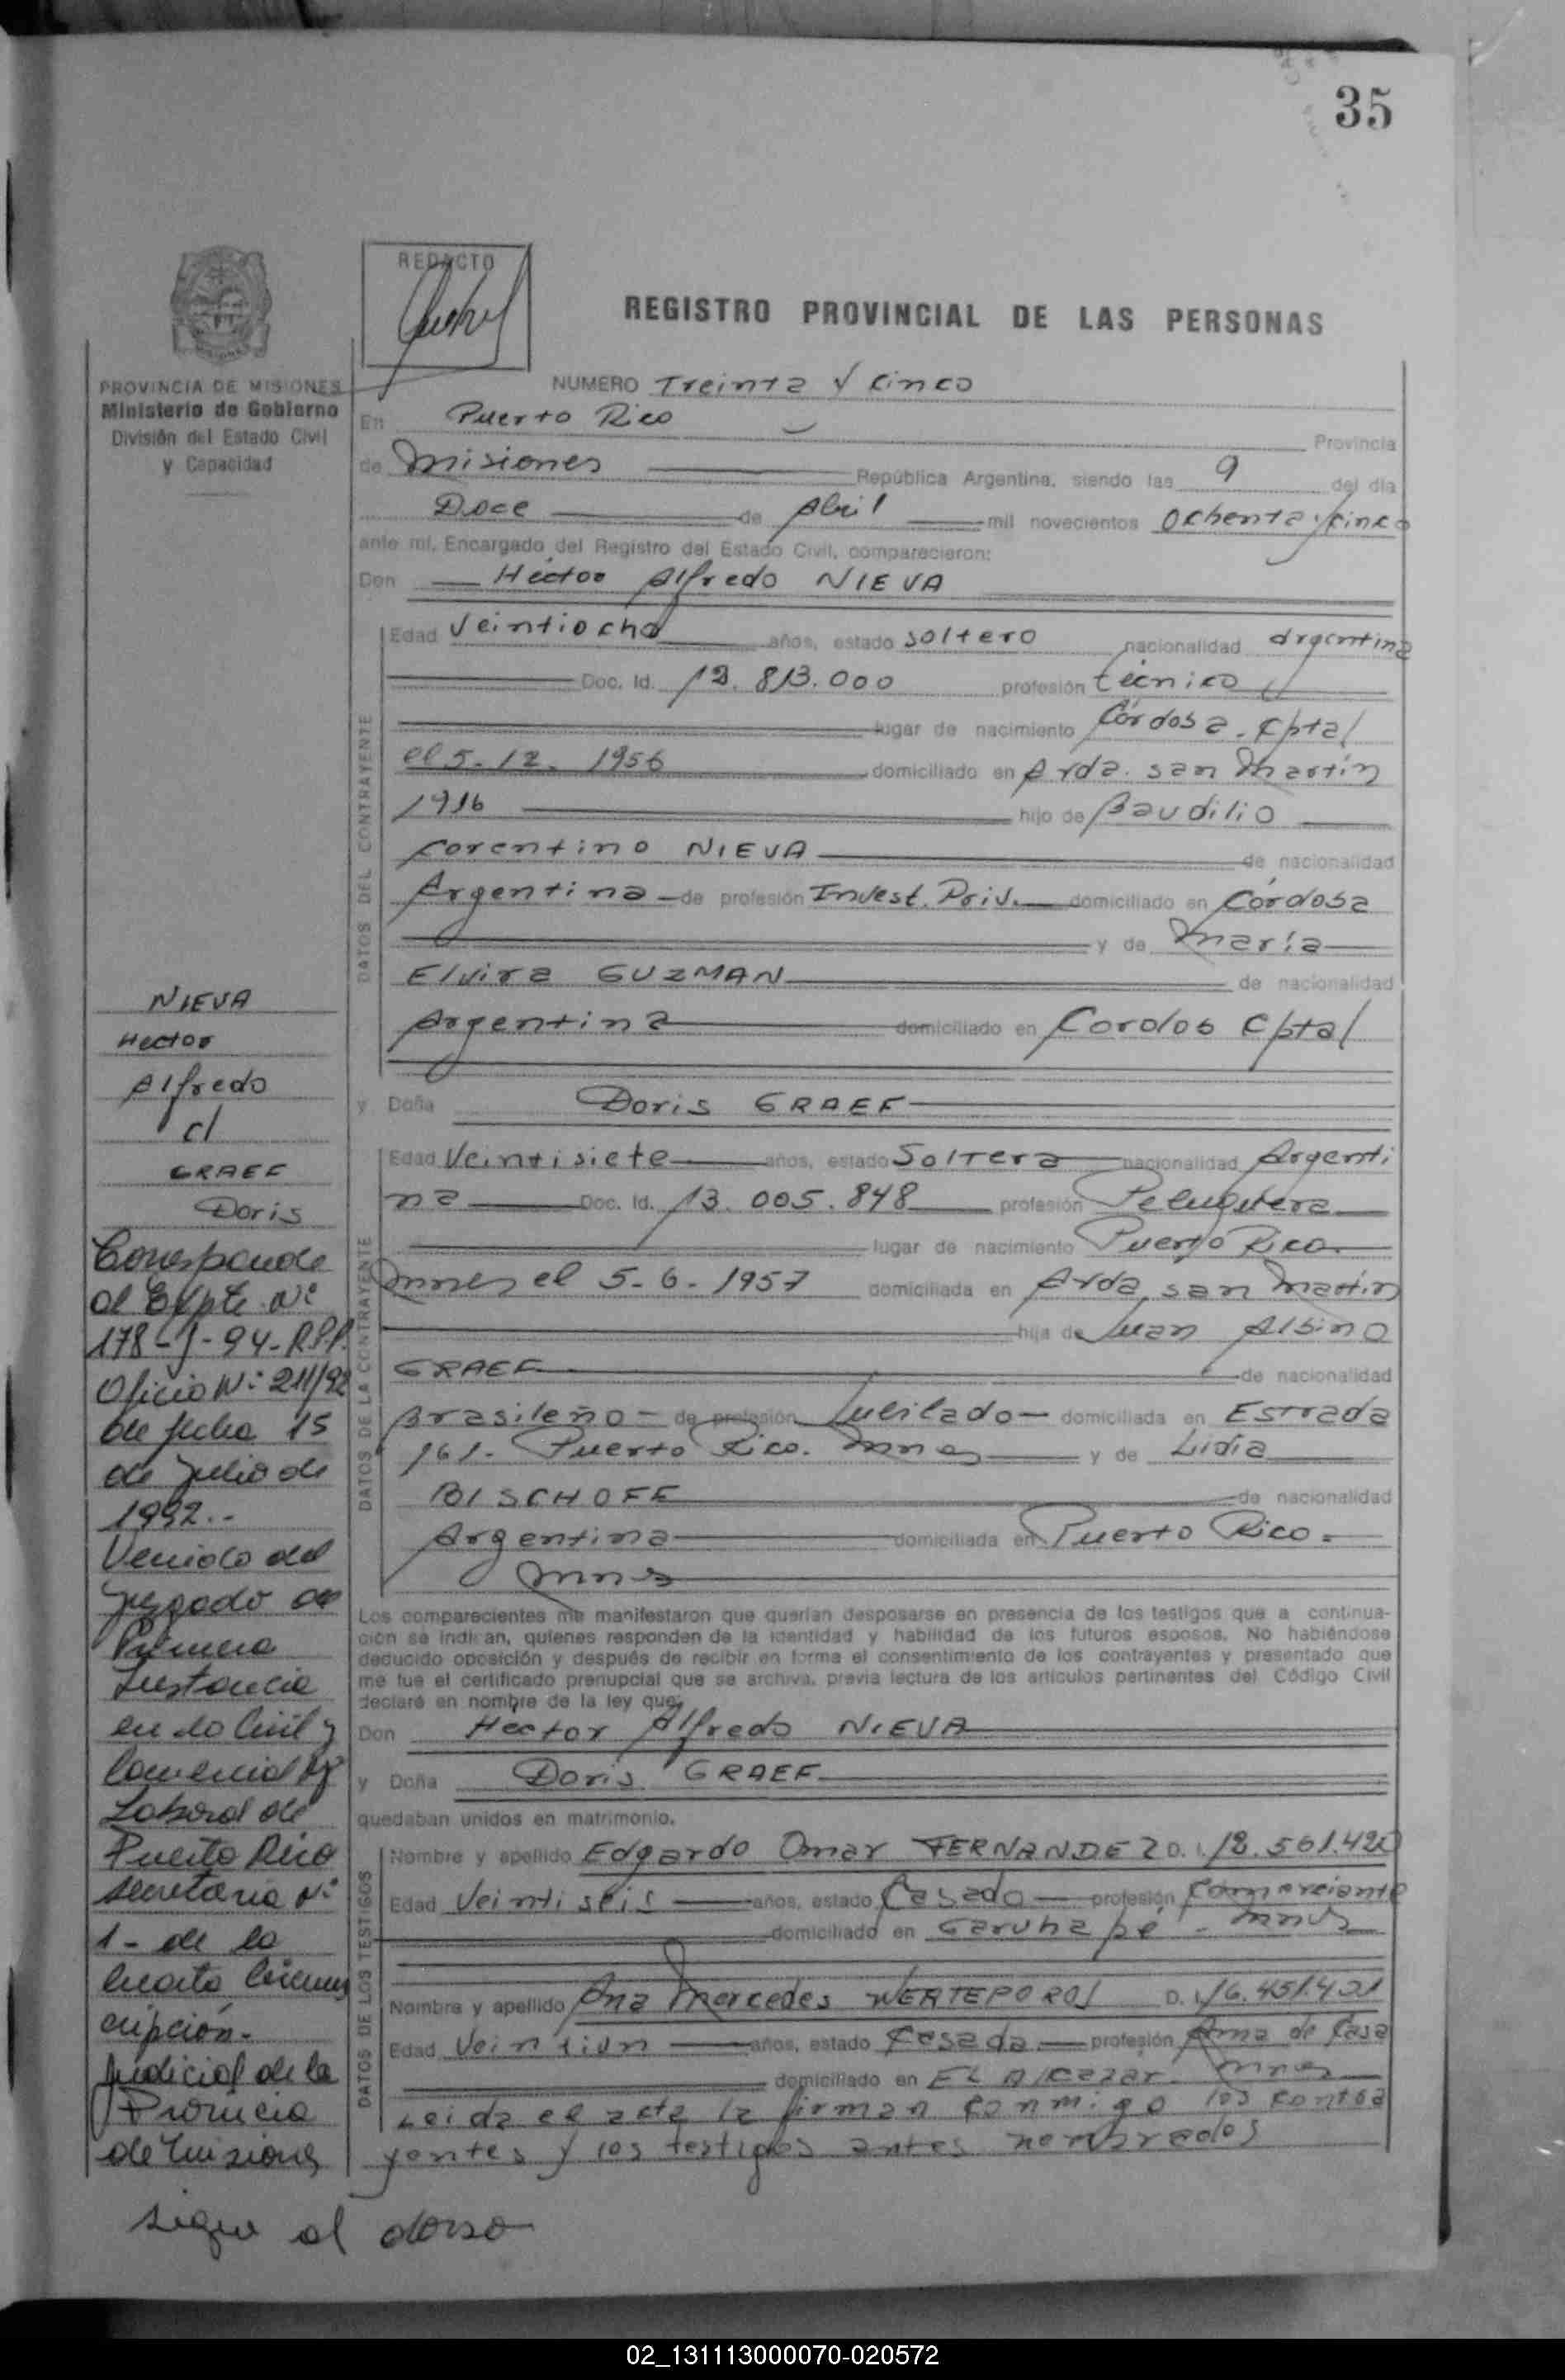 35
REDACTO
REGISTRO PROVINCIAL DE LAS PERSONAS
PROVINCIA DE MISIONES
Ministerio de Gobierno
División del Estado Civil
y Capacidad
NUMERO Treinta y cinco
En Puerto Rico Provincia
de Misiones República Argentina, siendo las 9 del día
Doce de Abril mil novecientos Ochenta y cinco
ante mí, Encargado del Registro del Estado Civil, comparecieron:
Don Héctor Alfredo NIEVA
DATOS DEL CONTRAYENTE
Edad Veintiocho años, estado soltero nacionalidad argentina
Doc. Id. 12.813.000 profesión técnico
lugar de nacimiento Córdoba. Cptal
el 5-12-1956 domiciliado en Avda. san Martín
1916 hijo de Baudilio
Corentino NIEVA de nacionalidad
Argentina de profesión Invest. Priv. domiciliado en Córdoba
y de María
Elvira GUZMAN de nacionalidad
Argentina domiciliado en Cordob Cptal
y Doña Doris GRAEF
DATOS DE LA CONTRAYENTE
Edad Veintisiete años, estado Soltera nacionalidad Argenti
na Doc. Id. 13.005.848 profesión Peluquera
lugar de nacimiento Puerto Rico.
Mnes el 5-6-1957 domiciliada en Avda. san Martín
hija de Juan Albino
GRAEF de nacionalidad
Brasileño - de profesión Jubilado - domiciliada en Estrada
161. Puerto Rico. Mnes y de Lidia
BISCHOFF de nacionalidad
Argentina domiciliada en Puerto Rico -
Mnes
Los comparecientes me manifestaron que querían desposarse en presencia de los testigos que a continua-
ción se indican, quienes responden de la identidad y habilidad de los futuros esposos. No habiéndose
deducido oposición y después de recibir en forma el consentimiento de los contrayentes y presentado que
me fue el certificado prenupcial que se archiva, previa lectura de los artículos pertinentes del Código Civil
declaré en nombre de la ley que:
Don Hector Alfredo NIEVA
y Doña Doris GRAEF
quedaban unidos en matrimonio.
DATOS DE LOS TESTIGOS
Nombre y apellido Edgardo Omar FERNANDEZ D. I. 12.561.420
Edad Veintiseis años, estado Casado profesión Comerciante
domiciliado en Garuhapé - Mnes
Nombre y apellido Ana Mercedes D. I. 16.451.421
Edad Veintiun años, estado Casada profesión Ama de Casa
domiciliado en EL Alcazar. Mnes
Leida el acta la firman conmigo los contra
yentes y los testigos antes nombrados
NIEVA
Hector
Alfredo
c/
GRAEF
Doris
Corresponde
al Expte. Nº
178-J-94-R.P.P.
Oficio Nº 211/92
de fecha 15
de Julio de
1992.-
Venido del
Juzgado de
Primera
Instancia
en lo Civil y
Comercial y
Laboral de
Puerto Rico
Secretaria Nº
1- de la
Cuarta Circuns
cripción
Judicial de la
Provincia
de Misiones
sigue al dorso
02_131113000070-020572